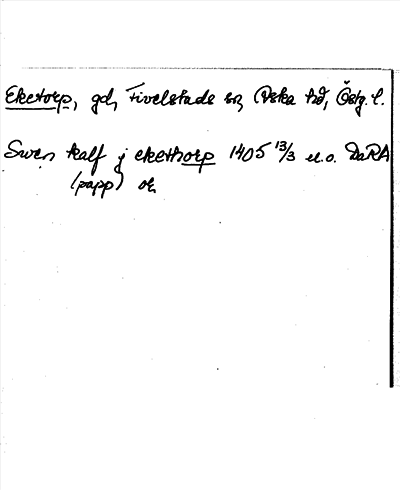 Eketorp, gd, Fivelstads sn, Aska hd, Östg. l.
Swen kalf j ekethorp 1405 13/3 u.o. DaRA
(papp) or.